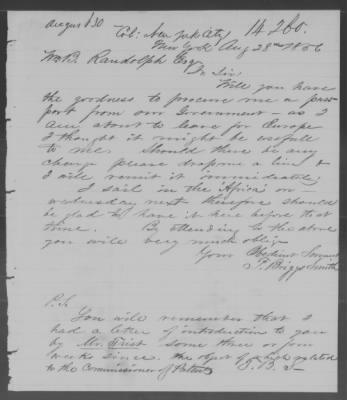 August 30
14260.
New York Aug 28th 1856
Wm B. Randolph Esq
Dr Sir
Will you have
the goodness to procure me a pass
port from our Government – as I
am about to leave for Europe
I thought it might be usefull
to me. Should there be any
charge please drop me a line &
I will remit it immediately
I sail in the Africa on –
wednesday next therefore should
be glad to have it here before that
time. By attending to the above
you will very much oblige
Your Obedient Servant
J. Briggs Smith
P.S.
You will remember that I
had a letter of introduction to you
by Mr. Trist some three or four
weeks since. the object of which related
to the Commissioner of Patents J.B.S–